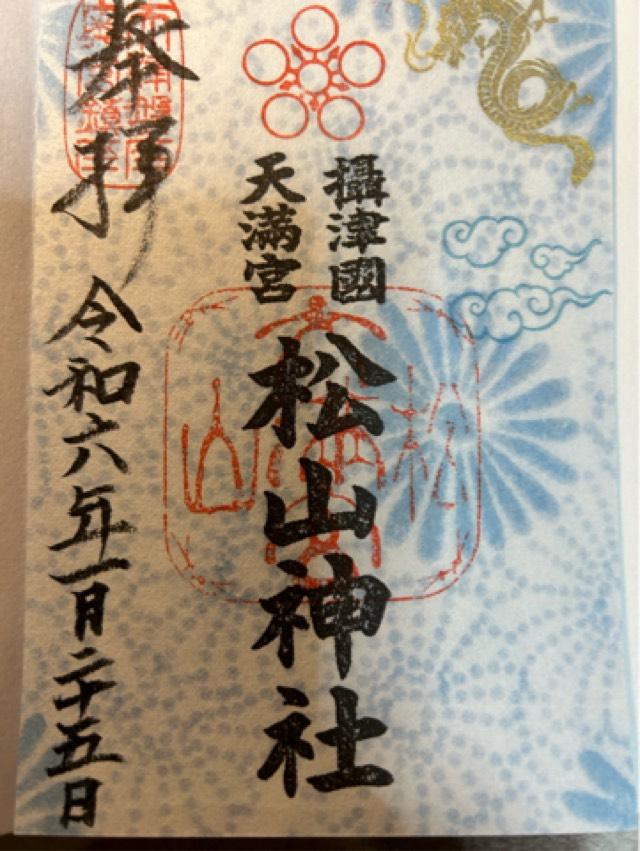 攝津國
天滿宮
松山神社
奉拝
令和六年一月二十五日